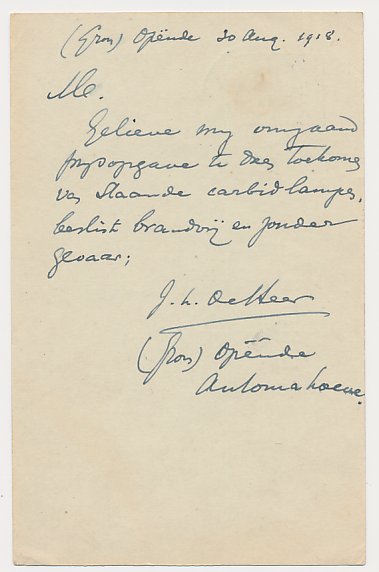 (Gron) Opëinde 20 Aug. 1918.
M.
Gelieve my omgaand
prysopgave te doen toekomen
van staande carbidlampen,
beslist brandvrij en zonder
gevaar;
J. H. de Heer
(Gron) Opëinde